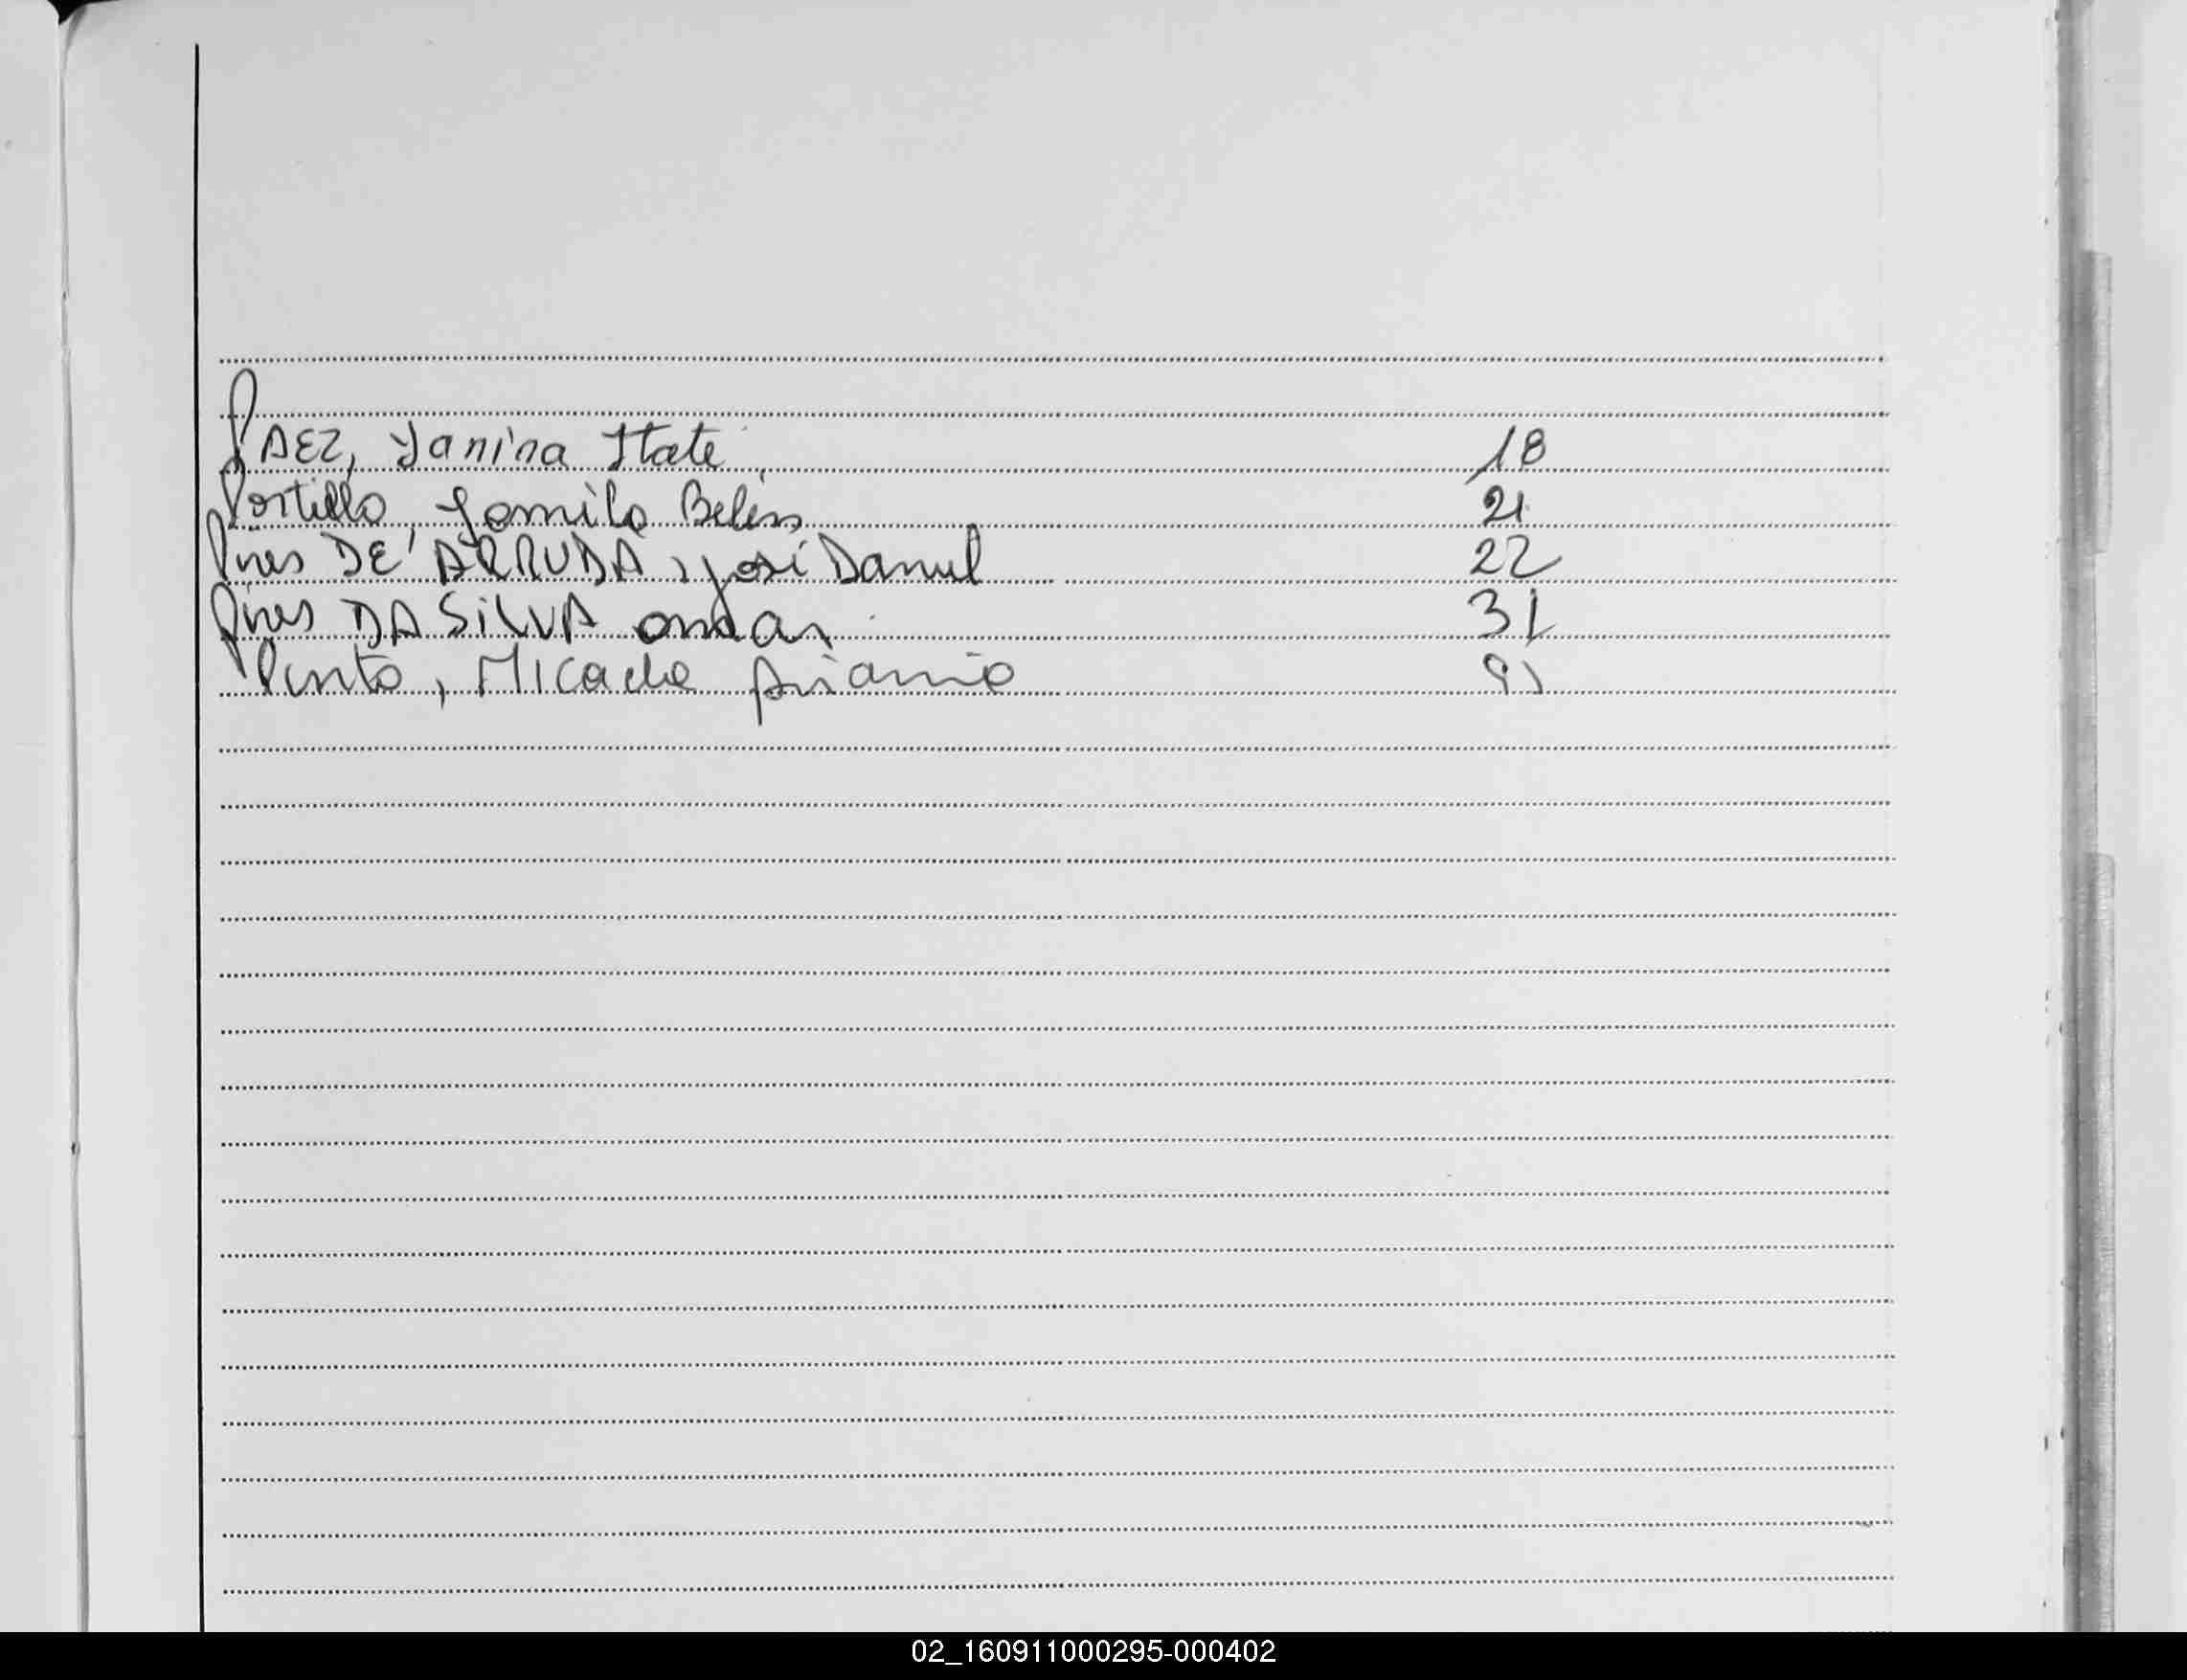 PAEZ, Yanina Itatí 18
Portillo, Yamila Belén 21
Pires DE ARRUDA, José Daniel 22
Pires DA SILVA Omar 31
Pinto, Micaela 
02_160911000295-000402